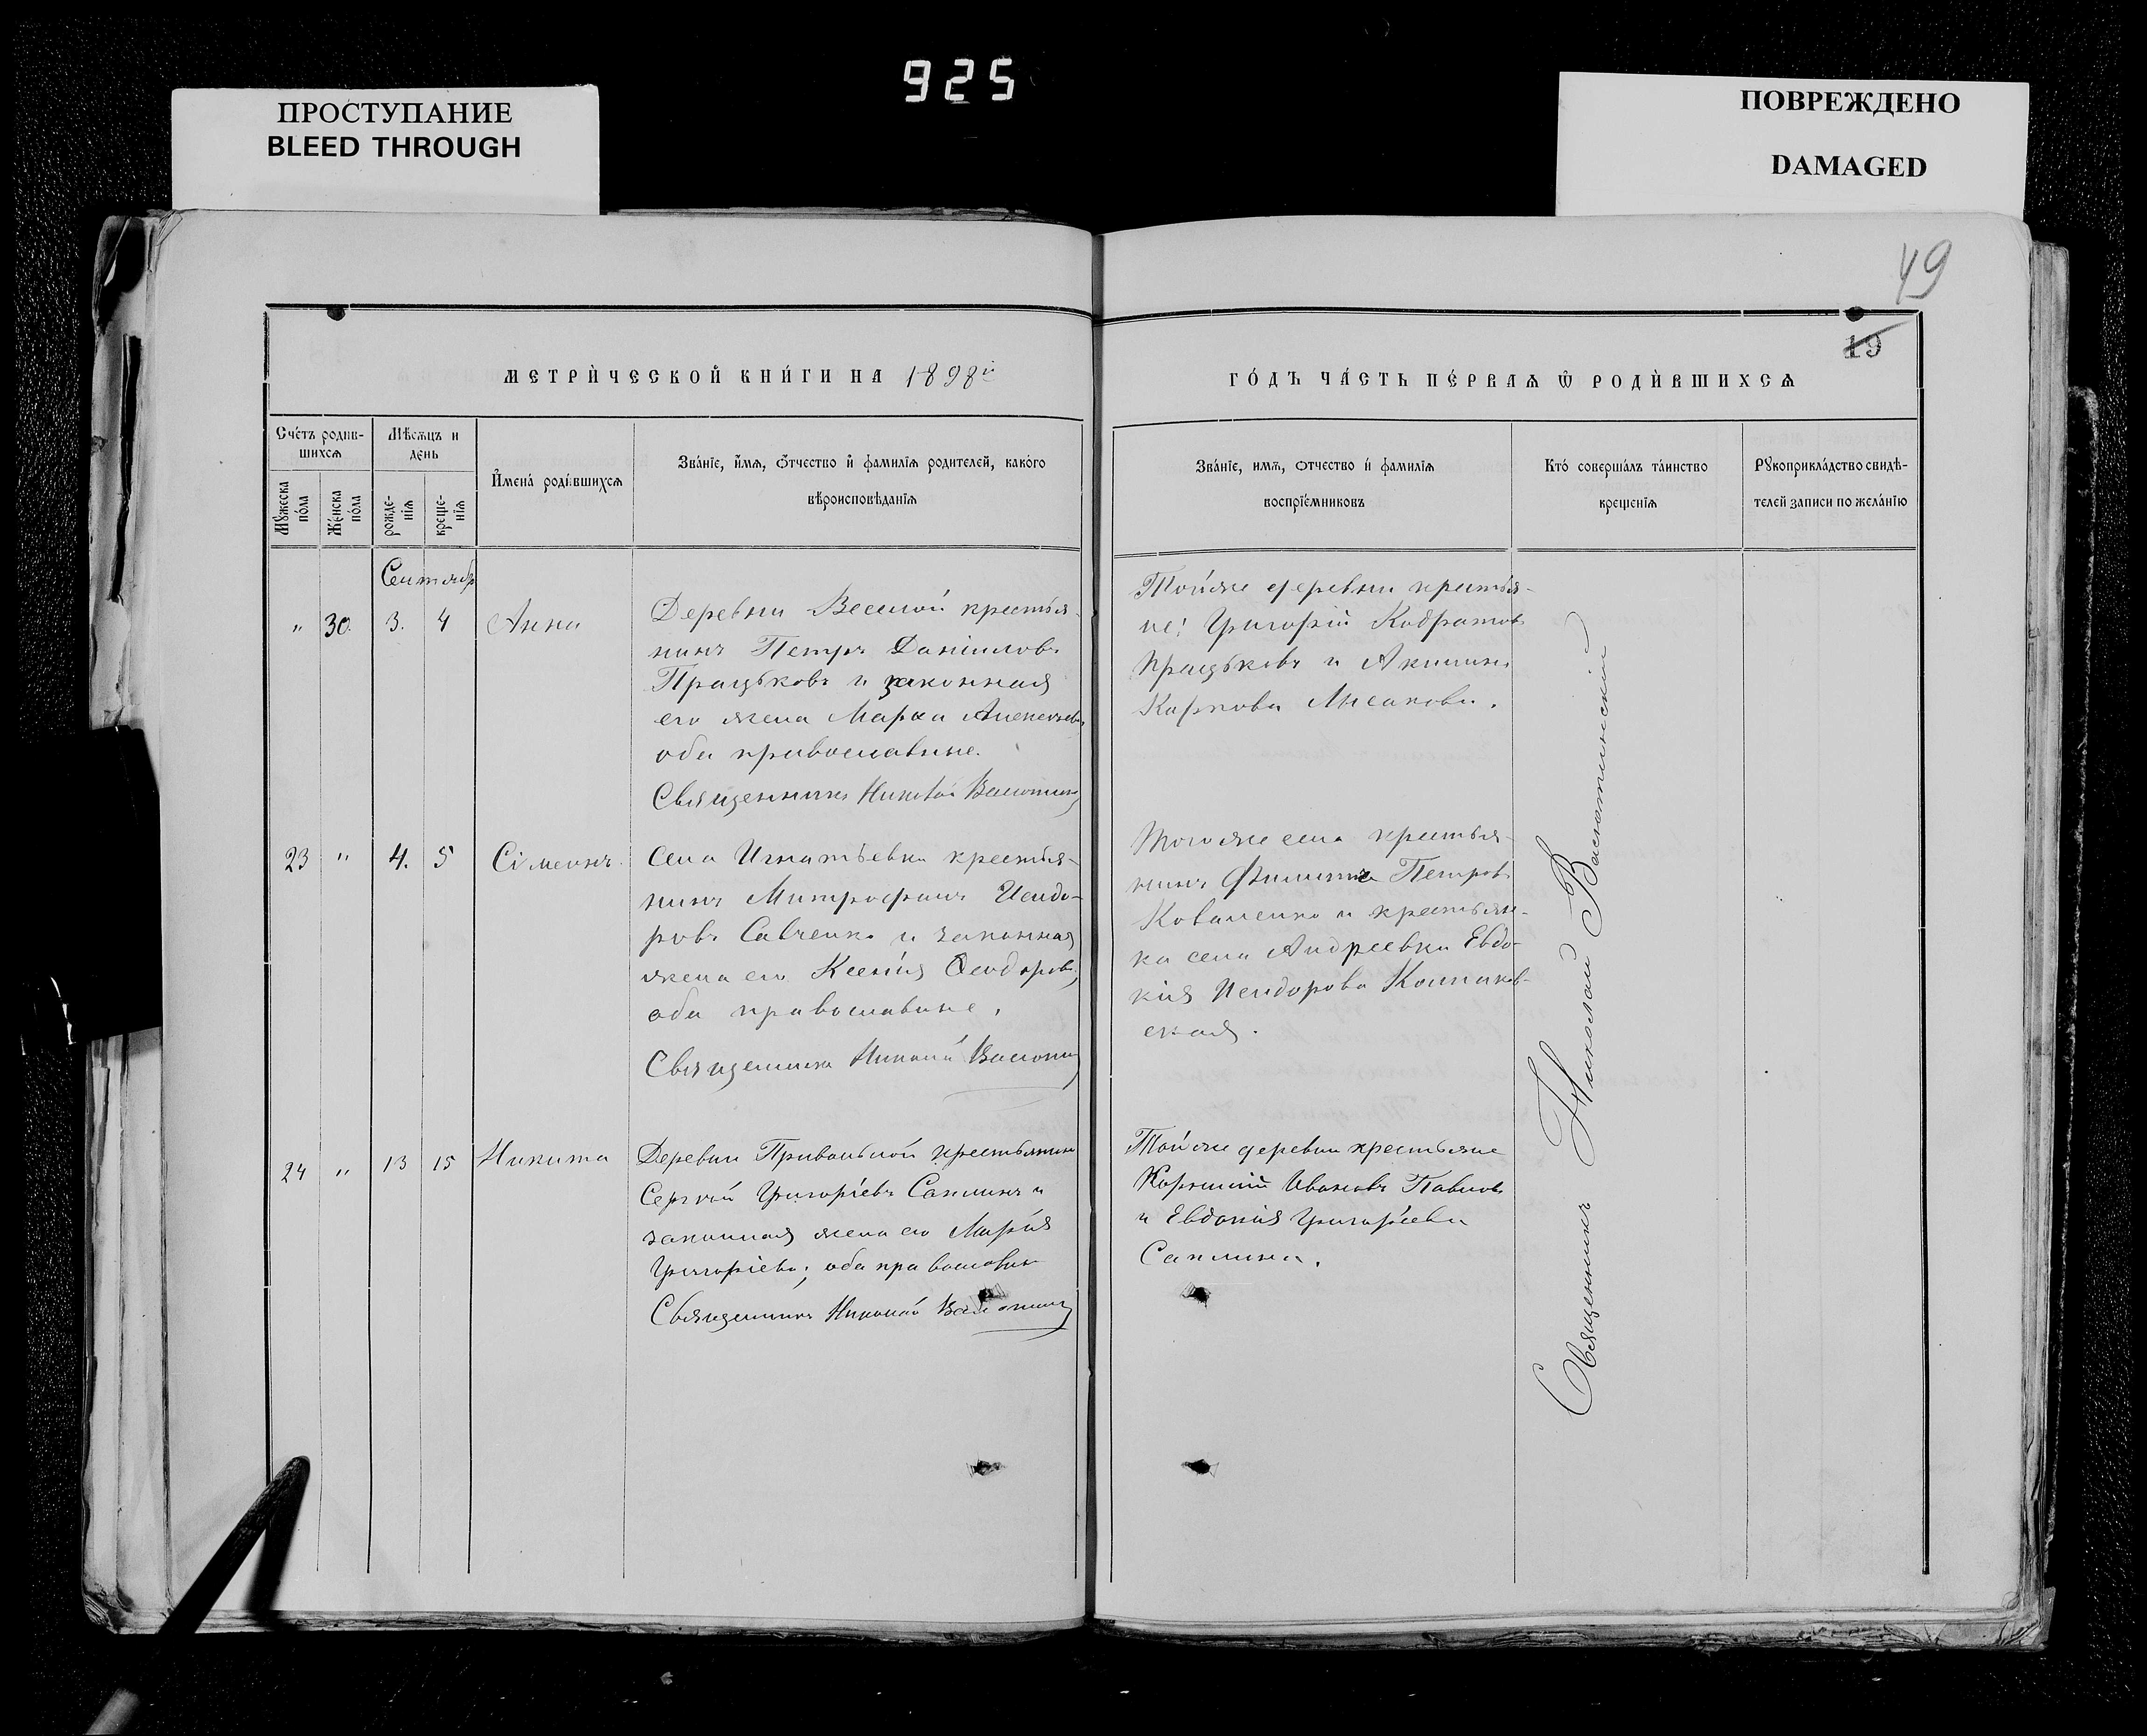 925
ПРОСТУПАНИЕ
BLEED THROUGH
ПОВРЕЖДЕНО
DAMAGED
49
19
МЕТРИ́ЧЕСКОЙ КНИ́ГИ НА 1898й
ГО́ДЪ ЧА́СТЬ ПЕ́РВАѦ Ѿ РОДИ́ВШИХСѦ
Сче́тъ родив-
шихсѧ
Мѣсѧцъ и
день
Мꙋжеска
по́ла
Же́нска
по́ла
рожде-
нїѧ
креще-
нїѧ
И҆мена́ роди́вшихсѧ
Зва́нїе, и҆́мѧ, ѻ҆́тчество и҆ фами́лїѧ родителей, како́го
вѣроисповѣ́данїѧ
Зва́нїе, имѧ, ѻтчество и҆ фами́лїѧ
воспрїе́мниковъ
Кто́ соверша́лъ та́инство
креще́нїѧ
Рꙋкоприкла́дство свидѣ-
телей записи по жела́нїю
Сентябр
" 30. 3. 4 Анна
Деревни Веселой крестья-
нинъ Петръ Данiиловъ
Працьковъ и законная
его жена Марѳа Алексѣева
оба православные.
Священникъ Николай
Тойже деревни крестья-
не: Григорій Кодратовъ
Працьковъ и Акилина
Карпова Лисакова.
23 " 4. 5 Сімеонъ.
Села Игнатьевки крестья-
нинъ Митрофанъ Исидо-
ровъ Савченко и законная
жена его Ксенія Ѳеодоров,
оба православные.
Священникъ Николай
Тогоже села крестья-
нинъ Филиппъ Петровъ
Коваленко и крестьян-
ка села Андреевки Евдо-
кія Исидорова
ская.
24 " 13 15 Никита
Деревни Привольной крестьянинъ
Сергѣй Григоріевъ Саплинъ и
законная жена его Марія
Григоріева; оба православные
Священникъ Николай
Тойже деревни крестьяне
Корнилій Ивановъ Павловъ
и Евдокія Григоріева
Саплина.
Священникъ Николай